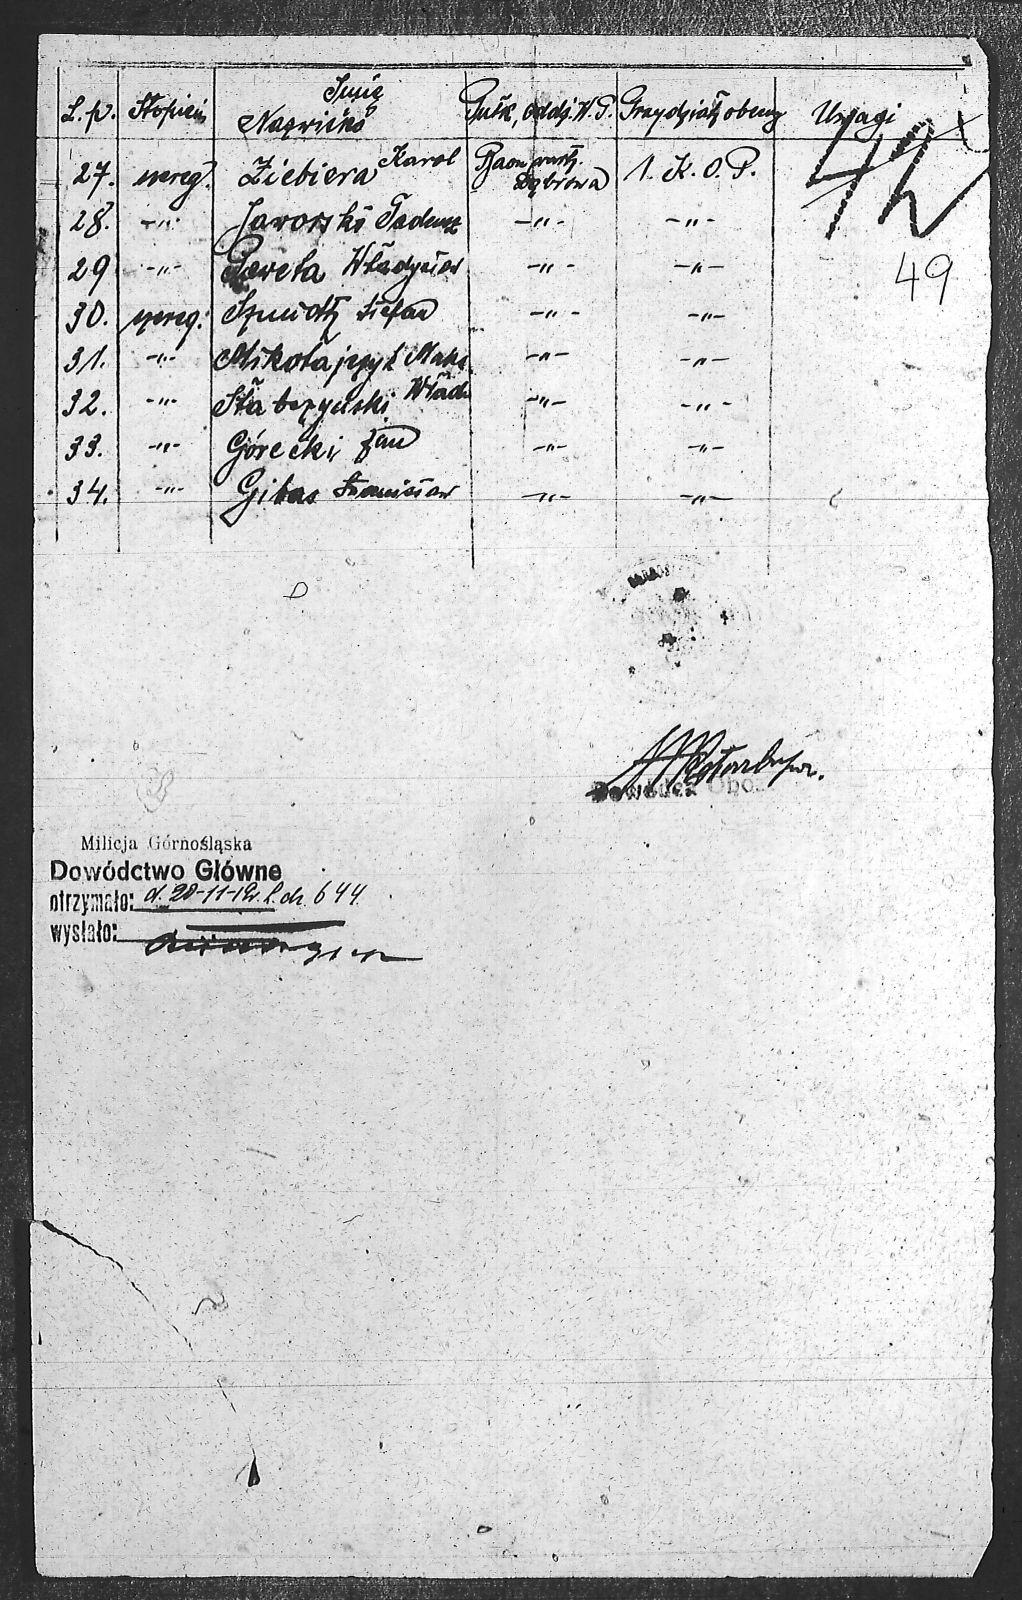 L.p. Stopień Imię Nazwisko Pułk, oddz. W.P. Przydział obecny Uwagi
42
49
27. szereg. Ziebiera Karol Baon wart. Dąbrowa 1. K.O.P.
28. -„- Jaworski Tadeusz -„- -„-
29 -„- Pawela Władysław -„- -„-
30. szereg. Szmidt Stefan -„- -„-
31. -„- Mikołajczyk Maks. -„- -„-
32. -„- Wład
33. -„- Górecki Jan -„- -„-
34. -„- Gibas Stanisław -„- -„-
Dowódca Oboz
Milicja Górnośląska
Dowództwo Główne
otrzymało: d. 20-11-19 L.dz. 644
wysłało: